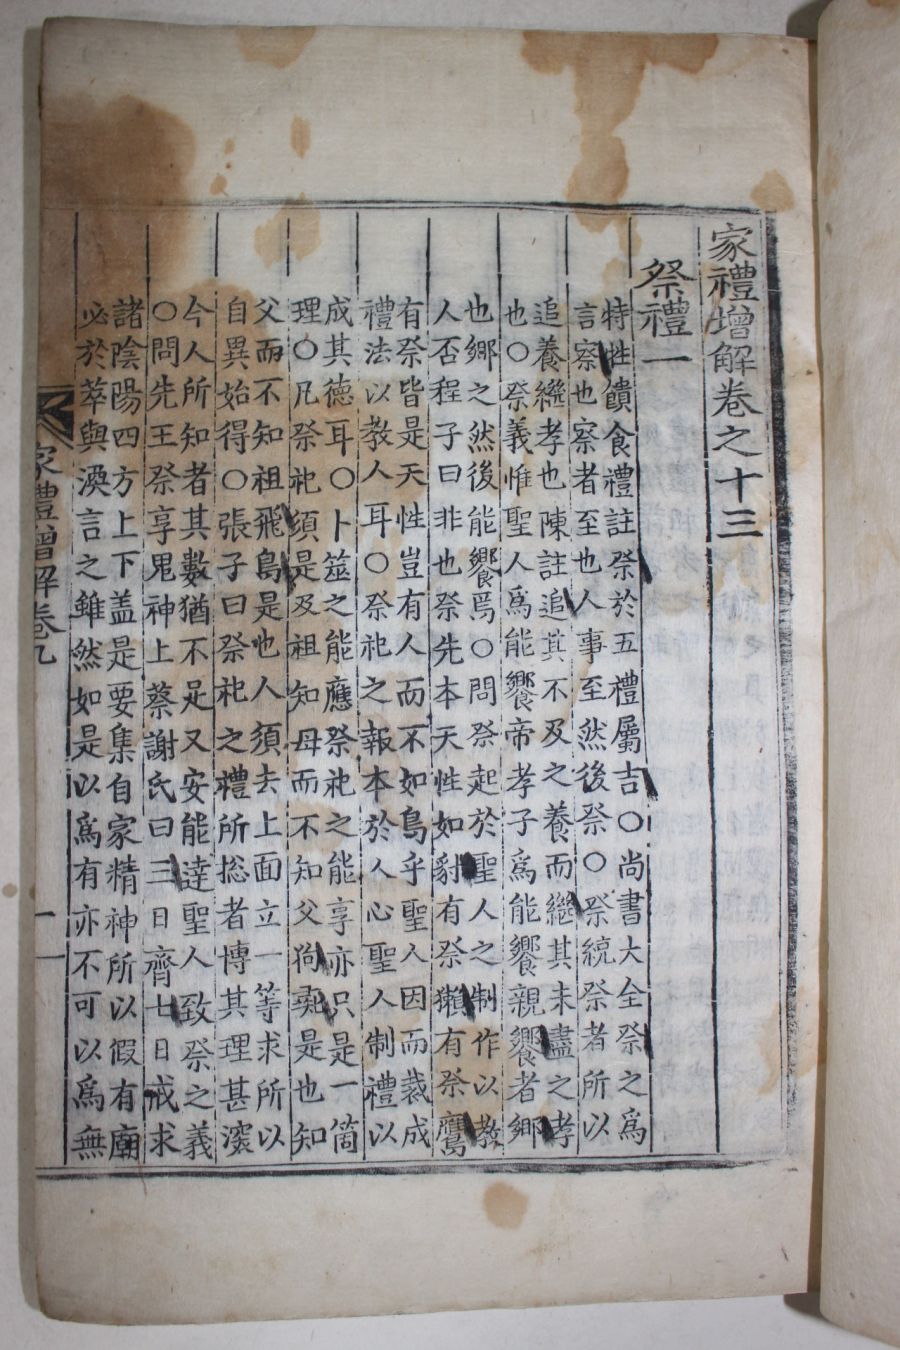 家禮增解卷之十三
祭禮一
特牲饋食禮註祭於五禮屬吉○尚書大全祭之爲
言察也察者至也人事至然後祭○祭統祭者所以
追養繼孝也陳註追其不及之養而繼其未盡之孝
也○祭義惟聖人爲能饗帝孝子爲能饗親饗者鄕
也鄕之然後能饗焉○問祭起於聖人之制作以教
人否程子曰非也祭先本天性如豺有祭獺有祭鷹
有祭皆是天性豈有人而不如鳥乎聖人因而裁成
禮法以教人耳○祭祀之報本於人心聖人制禮以
成其德耳○卜筮之能應祭祀之能享亦只是一箇
理○凡祭祀須是及祖知母而不知父狗彘是也知
父而不知祖飛鳥是也人須去上面立一等求所以
自異始得○張子曰祭祀之禮所捴者博其理甚深
今人所知者其數猶不足又安能達聖人致祭之義
○問先王祭享鬼神上蔡謝氏曰三日齊七日戒求
諸陰陽四方上下盖是要集自家精神所以假有廟
必於萃與渙言之雖然如是以爲有亦不可以爲無
家禮增解卷九
一